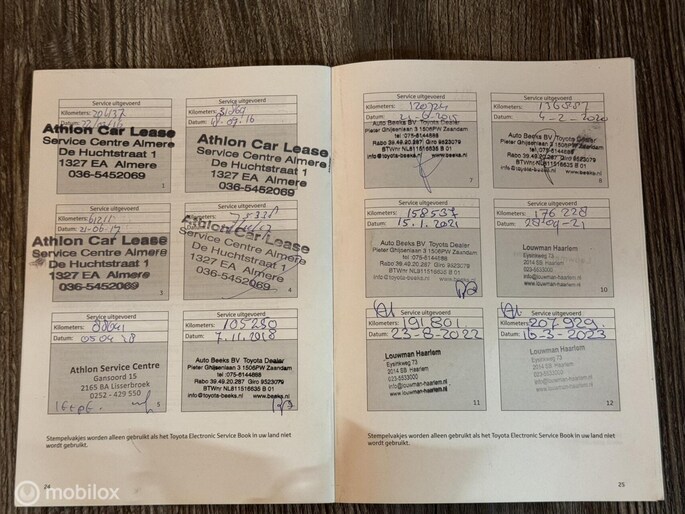 Service uitgevoerd
Kilometers:
Datum:
Athlon Car Lease
Service Centre Almere
De Huchtstraat 1
1327 EA Almere
036-5452069
1
Service uitgevoerd
Kilometers:
Datum:
Athlon Car Lease
Service Centre Almere
De Huchtstraat 1
1327 EA Almere
036-5452069
Service uitgevoerd
Kilometers:
Datum: 21-06-17
Athlon Car Lease
Service Centre Almere
De Huchtstraat 1
1327 EA Almere
036-5452069
3
Service uitgevoerd
Athlon Car Lease
Service Centre Almere
De Huchtstraat 1
1327 EA Almere
036-5452069
4
Service uitgevoerd
Kilometers:
Datum:
Athlon Service Centre
Gansoord 15
2165 BA Lisserbroek
0252 - 429 550
5
Service uitgevoerd
Kilometers: 105250
Datum: 7.11.2018
Auto Beeks BV Toyota Dealer
Pieter Ghijsenlaan 3 1506PW Zaandam
tel :075-6144666
Rabo 39.49.20.287 Giro 9523079
BTWnr NL811516635 B 01
info@toyota-beeks.nl www.beeks.nl
Stempelvakjes worden alleen gebruikt als het Toyota Electronic Service Book in uw land niet
wordt gebruikt.
24
Service uitgevoerd
Kilometers:
Datum:
Auto Beeks BV Toyota Dealer
Pieter Ghijsenlaan 3 1506PW Zaandam
tel :075-6144666
Rabo 39.49.20.287 Giro 9523079
BTWnr NL811516635 B 01
info@toyota-beeks.nl www.beeks.nl
7
Service uitgevoerd
Kilometers:
Datum: 4-2-2020
Auto Beeks BV Toyota Dealer
Pieter Ghijsenlaan 3 1506PW Zaandam
tel :075-6144666
Rabo 39.49.20.287 Giro 9523079
BTWnr NL811516635 B 01
info@toyota-beeks.nl www.beeks.nl
8
Service uitgevoerd
Kilometers: 158537
Datum: 15.1.2021
Auto Beeks BV Toyota Dealer
Pieter Ghijsenlaan 3 1506PW Zaandam
tel :075-6144666
Rabo 39.49.20.287 Giro 9523079
BTWnr NL811516635 B 01
info@toyota-beeks.nl www.beeks.nl
Service uitgevoerd
Kilometers: 176 228
Datum:
Louwman Haarlem
Eysinkweg 73
2014 SB Haarlem
023-5533000
louwman-haarlem.nl
10
Service uitgevoerd
Kilometers: 191 801
Datum: 23-8-2022
Louwman Haarlem
Eysinkweg 73
2014 SB Haarlem
023-5533000
louwman-haarlem.nl
11
Service uitgevoerd
Kilometers: 207929
Datum: 15-3-2023
Louwman Haarlem
Eysinkweg 73
2014 SB Haarlem
023-5533000
louwman-haarlem.nl
12
Stempelvakjes worden alleen gebruikt als het Toyota Electronic Service Book in uw land niet
wordt gebruikt.
25
mobilox